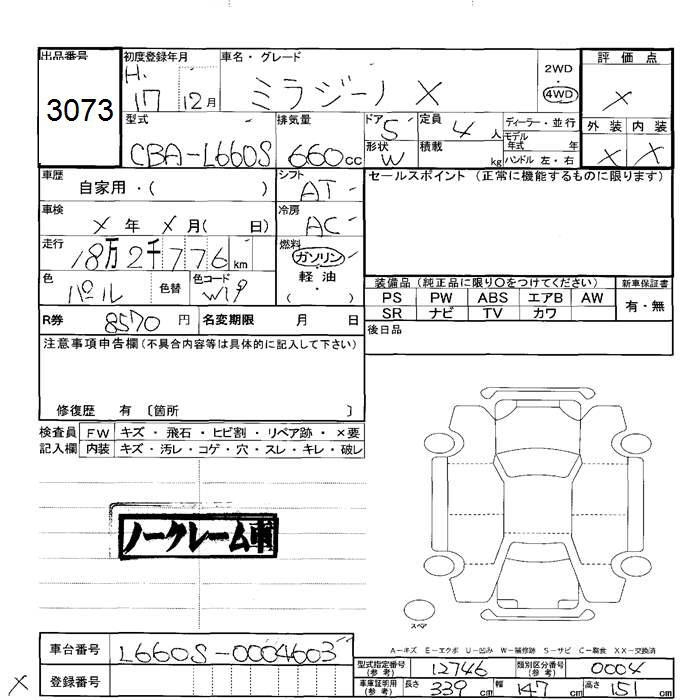 出品番号 初度登録年月 車名・グレード 2WD 評価点
3073 H. 17 12月 ミラジーノ X 4WD X
型式 排気量 ドア 5 定員 4 人 ディーラー・並行 外装 内装
モデル年式 年
CBA-L660S 660cc 形状 W 積載 kg ハンドル 左・右 X X
車歴 自家用・( ) シフト AT セールスポイント (正常に機能するものに限ります)
車検 X 年 X 月( 日) 冷房 AC
走行 18万2千776 km 燃料 ガソリン
色 パール 色替 色コード 軽油
( ) 装備品 (純正品に限り○をつけてください) 新車保証書
PS PW ABS エアB AW 有・無
R券 8570 円 名変期限 月 日 SR ナビ TV カワ
注意事項申告欄(不具合内容等は具体的に記入して下さい) 後日品
修復歴 有 〔箇所 〕
検査員 FW キズ・飛石・ヒビ割・リペア跡・×要
記入欄 内装 キズ・汚レ・コゲ・穴・スレ・キレ・破レ
ノークレーム車
スペア
A-キズ E-エクボ U-凹み W-補修跡 S-サビ C-腐食 XX-交換済
車台番号 L660S-0004603 型式指定番号(参考) 12746 類別区分番号(参考) 0004
X 登録番号 車庫証明用(参考) 長さ 339 cm 幅 147 cm 高さ 151 cm